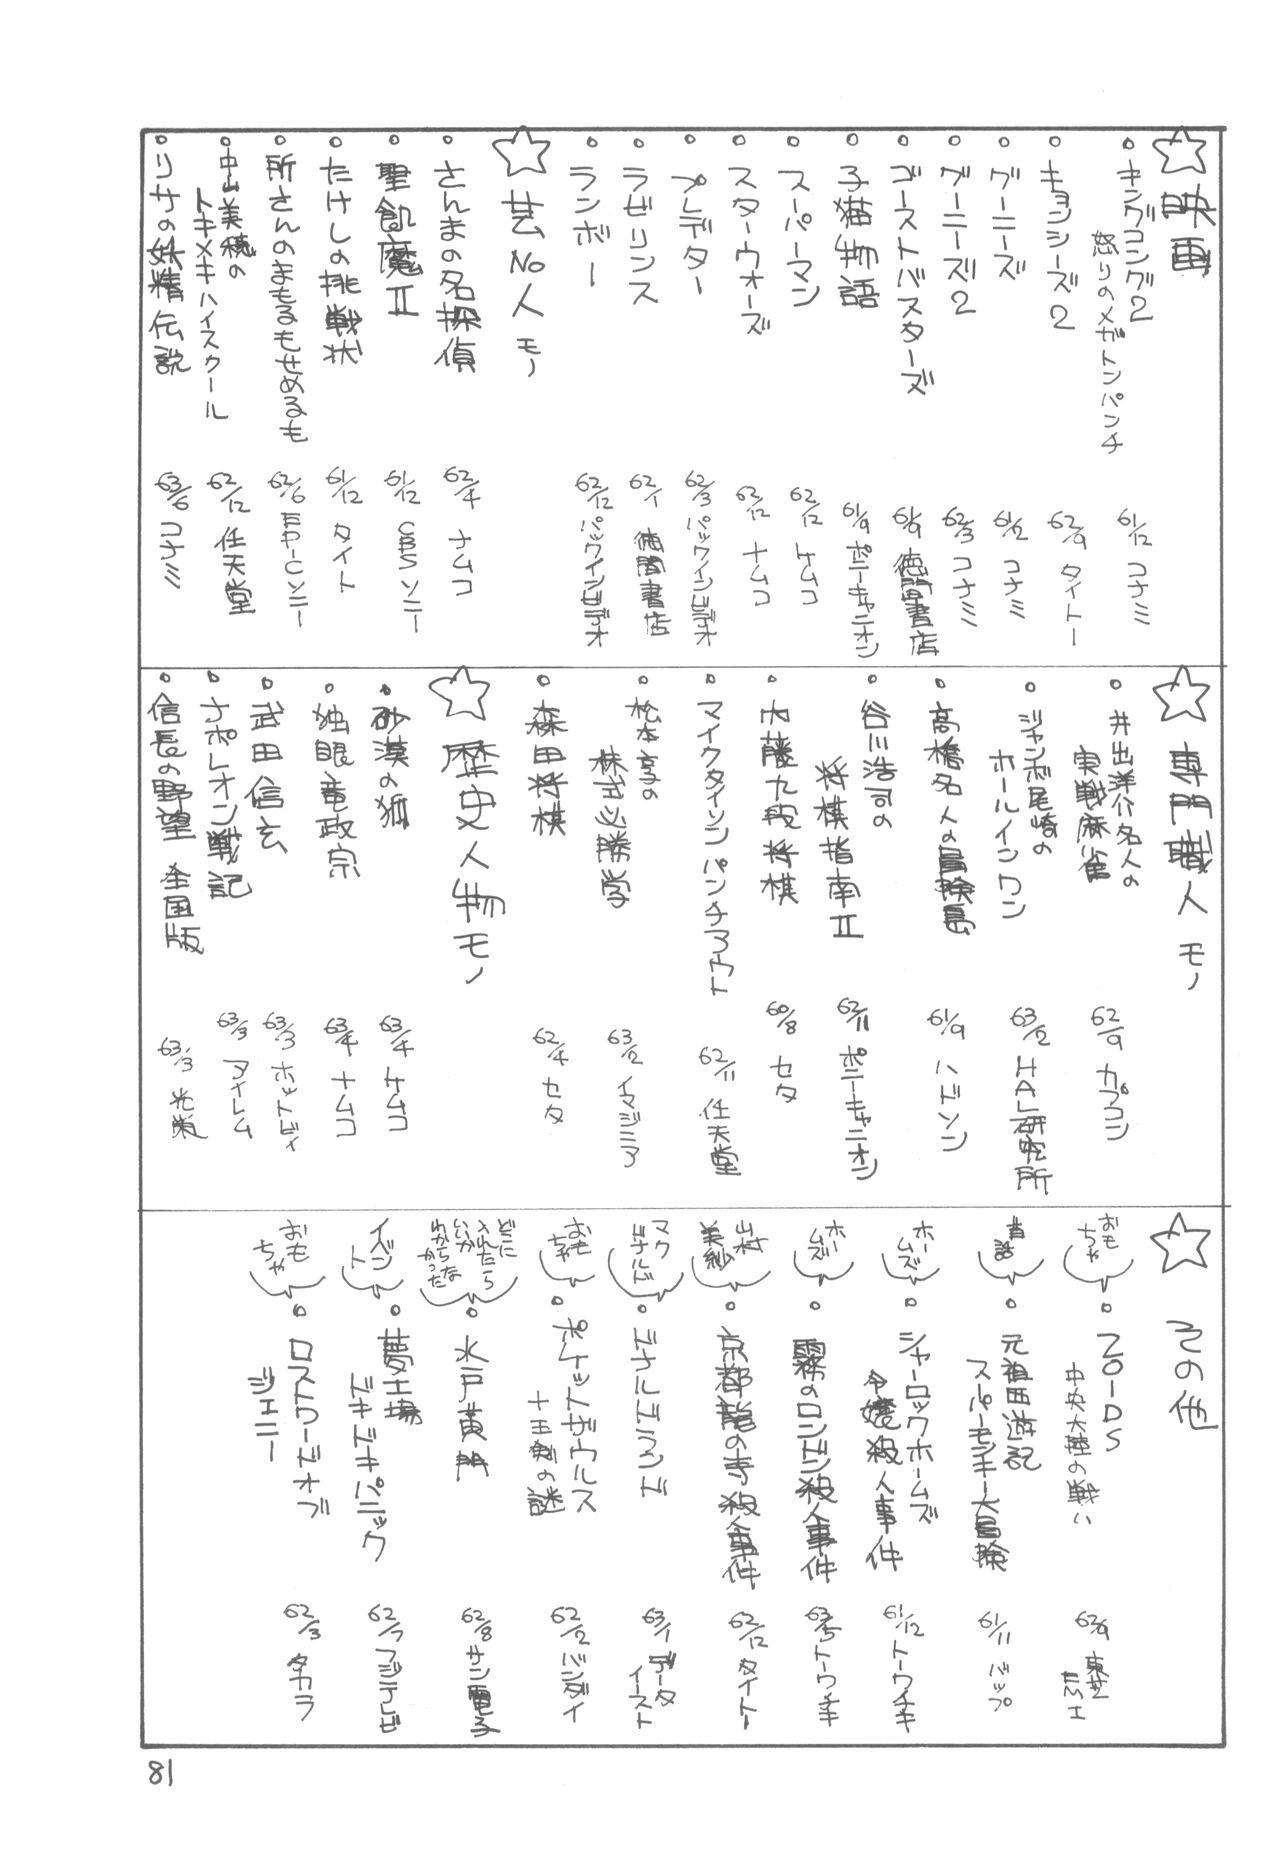 ☆映画
・キングコング2
怒りのメガトンパンチ
61/12 コナミ
・キョンシーズ2
62/9 タイトー
・グーニーズ
61/2 コナミ
・グーニーズ2
62/3 コナミ
・ゴーストバスターズ
61/9 徳間書店
・子猫物語
61/9 ポニーキャニオン
・スーパーマン
62/12 ケムコ
・スターウォーズ
62/12 ナムコ
・プレデター
62/3 パックインビデオ
・ラビリンス
62/1 徳間書店
・ランボー
62/12 パックインビデオ
☆芸NO人モノ
・さんまの名探偵
62/4 ナムコ
・聖飢魔II
61/12 CBSソニー
・たけしの挑戦状
61/12 タイト
・所さんのまもるもせめるも
62/6 EPICソニー
・中山美穂の
トキメキハイスクール
62/12 任天堂
・リサの妖精伝説
63/6 コナミ
☆専門職人モノ
・井出洋介名人の
実戦麻雀
62/9 カプコン
・ジャンボ尾崎の
ホールインワン
63/2 HAL研究所
・高橋名人の冒険島
61/9 ハドソン
・谷川浩司の
将棋指南II
62/11 ポニーキャニオン
・内藤九段将棋
60/8 セタ
・マイクタイソンパンチアウト
62/11 任天堂
・松本亨の
株式必勝学
63/2 イマジニア
・森田将棋
62/4 セタ
☆歴史人物モノ
・砂漠の狐
63/4 ケムコ
・独眼竜政宗
63/4 ナムコ
・武田信玄
63/3 ホットビィ
・ナポレオン戦記
63/3 アイレム
・信長の野望 全国版
63/3 光栄
☆その他
おもちゃ
・ZOIDS
中央大陸の戦い
62/9 東芝EMI
昔話
・元祖西遊記
スーパーモンキー大冒険
61/11 バップ
ホームズ
・シャーロックホームズ
令嬢殺人事件
61/12 トーワチキ
ホームズ
・霧のロンドン殺人事件
63/5 トーワチキ
山村美紗
・京都龍の寺殺人事件
62/12 タイトー
マクドナルド
・ドナルドランド
63/1 データイースト
おもちゃ
・ポケットザウルス
十王剣の謎
62/2 バンダイ
どこに入れたらいいかわからなかった
・水戸黄門
62/8 サン電子
イベント
・夢工場
ドキドキパニック
62/7 フジテレビ
おもちゃ
・ロストワードオブ
ジェニー
62/3 タカラ
81